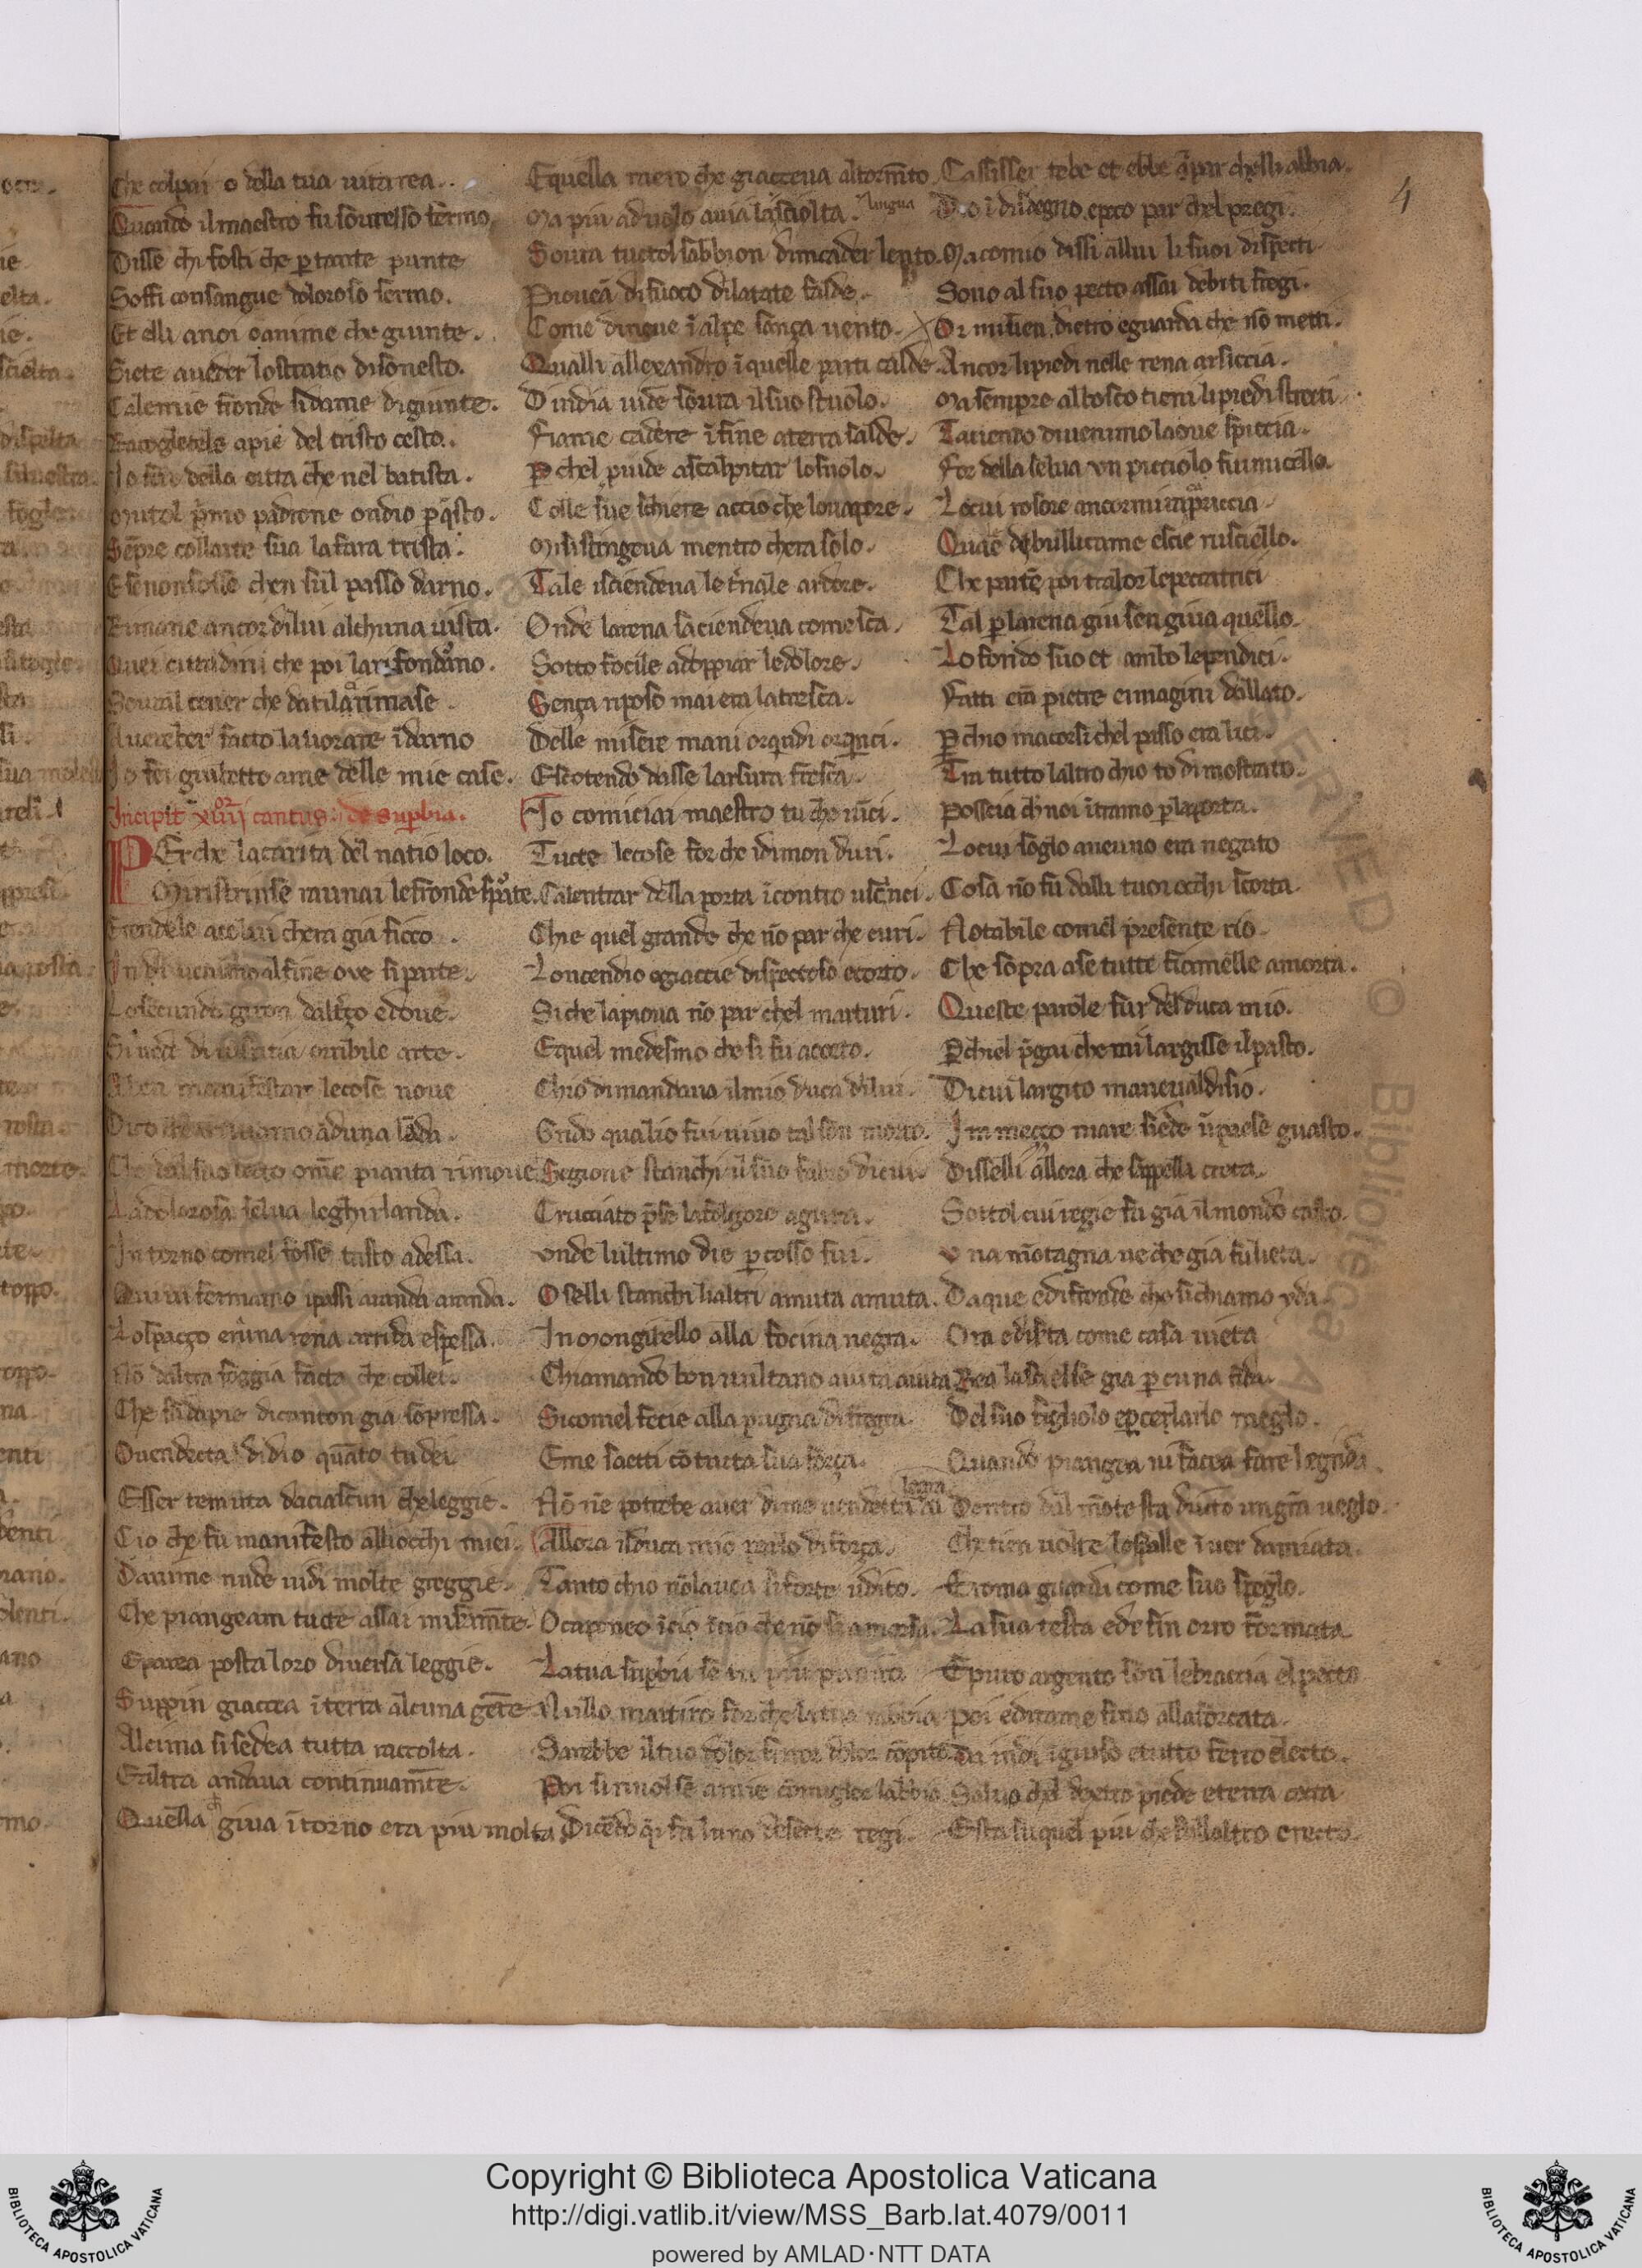 4
Che colpai o della tua uita rea.
Quando il maestro fu souresso fermo
Disse chi fosti che p tante punte
Soffi con sangue doloroso sermo.
Et elli anoi oanime che giunte.
Siete aueder lostratio disonesto.
Calemie fronde sidame digiunte.
Racogletele apie del tristo cesto.
Io fui della citta che nel batista.
mutol pmo padrone ondio p qsto.
Sempre collarte sua lafara trista.
Esenonfosse chen sul passo darno.
Rimane ancor dilui alchuna uista.
Quei cittadini che poi la rifondarno.
Soural cener che datila rimase.
Auereber fatto lauorare idarno
Io fei giubetto ame delle mie case.
Incipit xiiii cantus: de supbia.
PErche lacarita del natio loco.
Mistrinse raunai lefronde sparte.
Rendele acolui chera gia fioco.
Indi uenimo alfine oue siparte.
Losecundo giron dalterzo edoue.
Siuede di iustitia orribile arte.
Aben manifestar lecose noue
Dico che arriuamo aduna landa.
Che dal suo letto omne pianta rimoue
Ladolorosa selua leghirlanda.
Intorno comel fosse tristo adessa.
Quiui fermamo ipassi aranda aranda.
Lospazzo eruna rena arrida espessa.
No daltra foggia facta che collei.
Che fu dapie dicanton gia sopressa.
Ouendecta didio quato tu dei
Esser temuta daciascun cheleggie.
Cio che fu manifesto alliocchi miei.
Danime nude uidi molte greggie.
Che piangeam tucte assai misermte.
Eparea posta loro diuersa leggie.
Suppin giaccea iterra alcuna gete
Alcuna sisedea tutta raccolta.
Ealtra andaua continuamte.
Quella che giua itorno era piu molta
Equella meno che giaceua altormto.
Ma piu aduolo auia lasciolta.
lingua
Soura tuctol sabbion duncader lento.
Pioueā difuoco dilatate falde.
Come dineue ialpe sanza uento.
Qualli allexandro iquelle parti calde
Dindia uide soura ilsuo stuolo.
Fiame cadere ifine aterra salde.
P chel puide ascalpitar losuolo.
Colle sue schiere accio che louapore.
Misistingeua mentro chera solo.
Tale isciendeua leternale ardore.
Onde larena sacciendeua comesca.
Sotto focile adoppiar ledolore.
Senza riposo mai era latresca.
Delle misere mani or quindi or quinci.
Escotendo dasse larsura fresca.
Io cominciai maestro tu che uici.
Tucte lecose for che idimon duri.
Calentrar della porta icontro uscinci.
Chie quel grande che no par che curi.
Loncendio egiaccie dispectoso etorto.
Siche lapioua no par chel marturi.
Equel medesmo che si fu accorto.
Chio dimandaua ilmio duca dilui.
Grido qualio fui uiuo tal son morto.
Segioue stanchi il suo fabro dicui.
Crucciato pse lafolgore aguta.
onde lultimo die pcosso fui.
Oselli stanchi lialtri amuta amuta.
In mongibello alla focina negra.
Chiamando bon uulcano aiuta aiuta
Sicomel fecie alla pugna di flegra.
Eme saetti co tutta sua forza.
No ne potrebe auer
legra
Allora ilduca mio parlo diforza.
Tanto chio nolauea siforte udito.
Ocapaneo icio icio che no siamorsa.
Latua supbia se tu piu punito
Nullo martiro for che latua rabbia
Sarebbe iltuo dolor
Poi si riuolse amie
Dicedo qi fu luno desette regi.
Cassisser tebe et ebbe epar chelli abbia.
Dio i disdegno epoco par chel pregi.
Ma comio dissi allui li suoi dispecti
Sono al suo pecto assai debiti fregi.
Or miuien dietro eguarda che no metti.
Ancor lipiedi nelle rena arsiccia.
Ma sempre albosco tieni lipiedi strecti.
Taciendo diuenimo laoue spiccia.
For della selua un picciolo fiumicello.
Locui rosore ancor mi rapriccia.
Quae debullicame escie rusciello.
Che parte poi tralor lepeccatrici
Tal p larena giu sen giua quello.
Lo fondo suo et ambo lependici.
Fatti era pietre emmagini dallato.
P chio macorsi chel passo era lici.
Tra tutto laltro chio to dimostrato.
Posscia ch noi itramo p laporta.
Locui soglio aneuno era negato
Cosa no fu dalli tuoi occhi scorta.
Notabile comel presente rio.
Che sopra ase tutte fiammelle amorta.
Queste parole fur del duca mio.
P chiel pgai che mi largisse il pasto.
Dicui largito maneua ldisio.
In mezzo mare siede unpaese guasto.
Disselli allora che sappella creta.
Sottol cui regie fu gia il mondo casto.
una motagna ue che gia fu lieta.
Daque edifronde che si chiamo yda.
Ora edisfta come casa uieta
Rea lascielse gia p cuna fida.
Del suo figliolo epcelarlo meglo.
Quando piangea ui facea fare legrida.
Dentro dal mote sta dritto un gra ueglo.
Che tien uolte lespalle iuer damiata.
Eroma guarda come suo speglo.
La sua testa edi fin oro formata
Epuro argento son lebraccia el pecto
Poi edirame fino allaforcata.
Da indi i giuso etutto ferro electo.
Saluo chel dextro piede eterra cotta
Esta su quel piu che sullaltro erecto.
Copyright © Biblioteca Apostolica Vaticana
http://digi.vatlib.it/view/MSS_Barb.lat.4079/0011
powered by AMLAD·NTT DATA
BIBLIOTECA APOSTOLICA VATICANA
BIBLIOTECA APOSTOLICA VATICANA